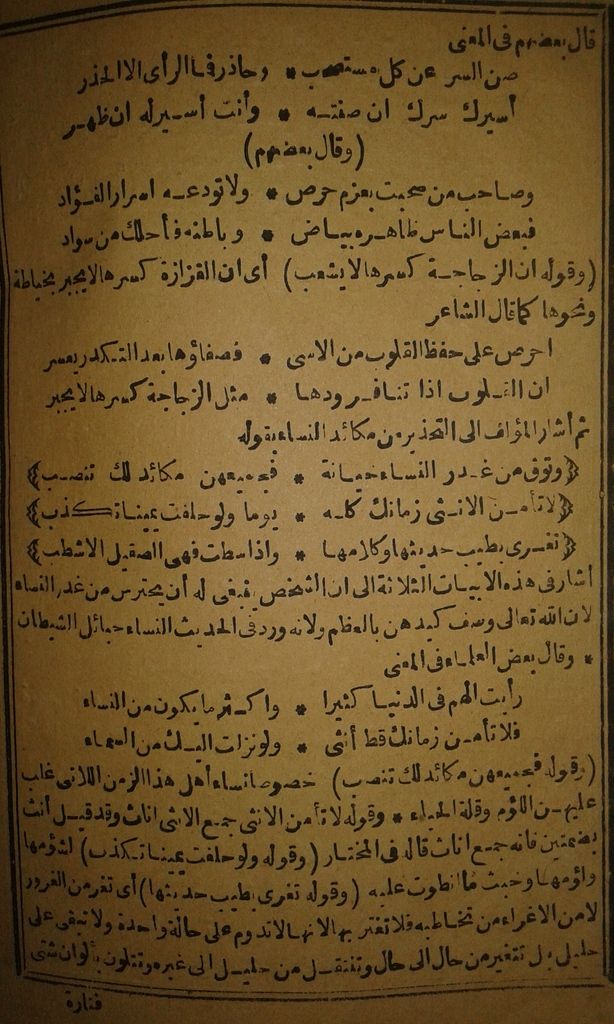 قال بعضهم فى المعنى
صن السر عن كل مستصعب * وحاذر فما الرأى الا الحذر
أسيرك سرك ان صنته * وأنت أسير له ان ظهر
(وقال بعضهم)
وصاحب من صحبت بعزم حرص * ولا تودعه اسرار الفؤاد
فبعض الناس ظاهره بياض * وباطنه فأحلك من سواد
(وقوله ان الزجاجة كسرها لا يشعب) أى ان القزازة كسرها لا يجبر بخياطة
ونحوها كما قال الشاعر
احرص على حفظ القلوب من الاسى * فصفاؤها بعد التكدر يعسر
ان القلوب اذا تنافر ودها * مثل الزجاجة كسرها لا يجبر
ثم أشار المؤلف الى التحذير من مكائد النساء بقوله
﴿وتوق من غدر النساء خيانة * فجميعهن مكائد لك تنصب﴾
﴿لا تأمن الانثى زمانك كله * يوما ولو حلفت يمينا تكذب﴾
﴿تغرى بطيب حديثها وكلامها * واذا سطت فهى الصقيل الاشطب﴾
أشار فى هذه الابيات الثلاثة الى ان الشخص ينبغى له أن يحترس من غدر النساء
لان الله تعالى وصف كيدهن بالعظم ولانه ورد فى الحديث النساء حبائل الشيطان
* وقال بعض العلماء فى المعنى
رأيت الهم فى الدنيا كثيرا * واكثر ما يكون من النساء
فلا تأمن زمانك قط أنثى * ولو نزلت اليك من السماء
(وقوله فجميعهن مكائد لك تنصب) خصوصا نساء أهل هذا الزمن اللاتى غلب
عليهن اللؤم وقلة الحياء * وقوله لا تأمن الانثى جمع الانثى اناث وقد قيل أنث
بضمتين فانه جمع اناث قاله فى المختار (وقوله ولو حلفت يمينا تكذب) لشؤمها
ولؤمها وخبث ما انطوت عليه (وقوله تغرى بطيب حديثها) أى تغر من الغرور
لا من الاغراء من تخاطبه فلا تغتر بها لانها لا تدوم على حالة واحدة ولا تبقى على
خليل بل تتغير من حال الى حال وتنتقل من خليل الى غيره وتتلون بألوان شتى
فتارة